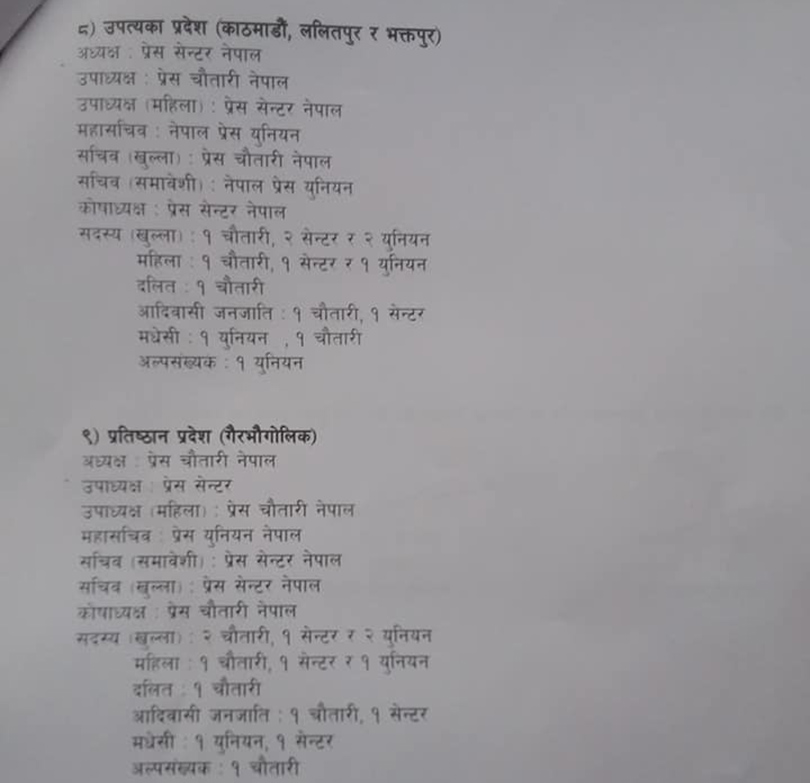 ८) उपत्यका प्रदेश (काठमाडौं, ललितपुर र भक्तपुर)
अध्यक्ष : प्रेस सेन्टर नेपाल
उपाध्यक्ष : प्रेस चौतारी नेपाल
उपाध्यक्ष (महिला) : प्रेस सेन्टर नेपाल
महासचिव : नेपाल प्रेस युनियन
सचिव (खुल्ला) : प्रेस चौतारी नेपाल
सचिव (समावेशी) : नेपाल प्रेस युनियन
कोषाध्यक्ष : प्रेस सेन्टर नेपाल
सदस्य (खुल्ला) : १ चौतारी, २ सेन्टर र २ युनियन
महिला : १ चौतारी, १ सेन्टर र १ युनियन
दलित : १ चौतारी
आदिवासी जनजाति : १ चौतारी, १ सेन्टर
मधेसी : १ युनियन , १ चौतारी
अल्पसंख्यक : १ युनियन
९) प्रतिष्ठान प्रदेश (गैरभौगोलिक)
अध्यक्ष : प्रेस चौतारी नेपाल
उपाध्यक्ष : प्रेस सेन्टर
उपाध्यक्ष (महिला) : प्रेस चौतारी नेपाल
महासचिव : प्रेस युनियन नेपाल
सचिव (समावेशी) : प्रेस सेन्टर नेपाल
सचिव (खुल्ला) : प्रेस सेन्टर नेपाल
कोषाध्यक्ष : प्रेस चौतारी नेपाल
सदस्य (खुल्ला) : २ चौतारी, १ सेन्टर र २ युनियन
महिला : १ चौतारी, १ सेन्टर र १ युनियन
दलित : १ चौतारी
आदिवासी जनजाति : १ चौतारी, १ सेन्टर
मधेसी : १ युनियन, १ सेन्टर
अल्पसंख्यक : १ चौतारी